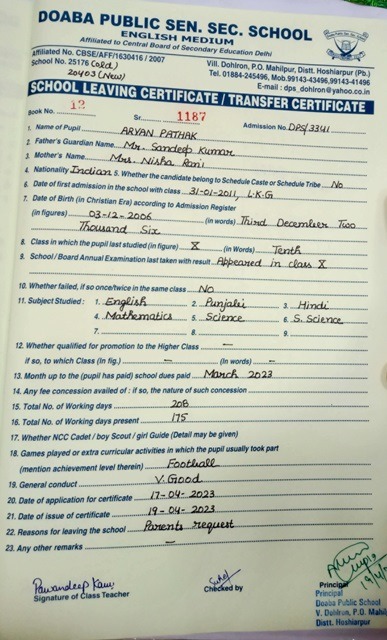 DOABA PUBLIC SEN. SEC. SCHOOL
ENGLISH MEDIUM
Affiliated to Central Board of Secondary Education Delhi
Affiliated No. CBSE/AFF/1630416 / 2007
School No. 25176 (old)
20403 (New)
Vill. Dohlron, P.O. Mahilpur, Distt. Hoshiarpur (Pb.)
Tel. 01884-245496, Mob.99143-43496,99143-41496
E-mail : dps_dohlron@yahoo.co.in
SCHOOL LEAVING CERTIFICATE / TRANSFER CERTIFICATE
Book No. 12 Sr. 1187 Admission No. DPS/3341
1. Name of Pupil ARYAN PATHAK
2. Father's Guardian Name Mr. Sandeep Kumar
3. Mother's Name Mrs. Nisha Rani
4. Nationality Indian 5. Whether the candidate belong to Schedule Caste or Schedule Tribe No
6. Date of first admission in the school with class 31-01-2011, L.K.G
7. Date of Birth (in Christian Era) according to Admission Register
(in figures) 03-12-2006 (in words) Third December Two
Thousand Six
8. Class in which the pupil last studied (in figure) X (in Words) Tenth
9. School / Board Annual Examination last taken with result Appeared in class X
10. Whether failed, if so once/twice in the same class No
11. Subject Studied : 1. English 2. Punjabi 3. Hindi
4. Mathematics 5. Science 6. S. Science
7. 8. 9.
12. Whether qualified for promotion to the Higher Class -
if so, to which Class (In fig.) - (In words) -
13. Month up to the (pupil has paid) school dues paid March 2023
14. Any fee concession availed of : if so, the nature of such concession
15. Total No. of Working days 208
16. Total No. of Working days present 175
17. Whether NCC Cadet / boy Scout / girl Guide (Detail may be given)
18. Games played or extra curricular activities in which the pupil usually took part
(mention achievement level therein) Football
19. General conduct V. Good
20. Date of application for certificate 17-04-2023
21. Date of issue of certificate 19-04-2023
22. Reasons for leaving the school Parents request
23. Any other remarks -
Pawandeep Kaur
Signature of Class Teacher
Checked by
Principal
Principal
Doaba Public School
V. Dohlron, P.O. Mahil
Distt. Hoshiarpur